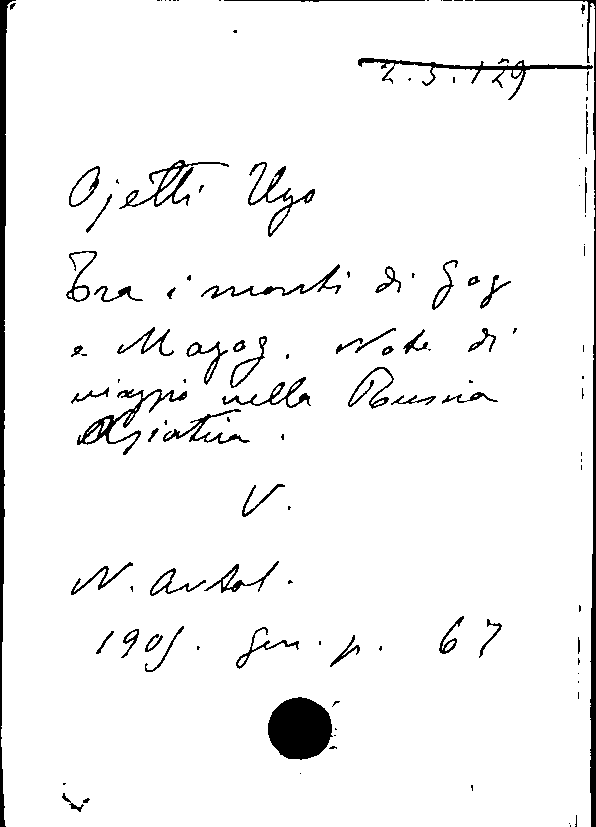 2.3.129
Ojetti Ugo
Tra i monti di Gog
e Magog. Note di
viaggio nella Russia
Asiatica.
V.
N. Antol.
1905. Gen. p. 67